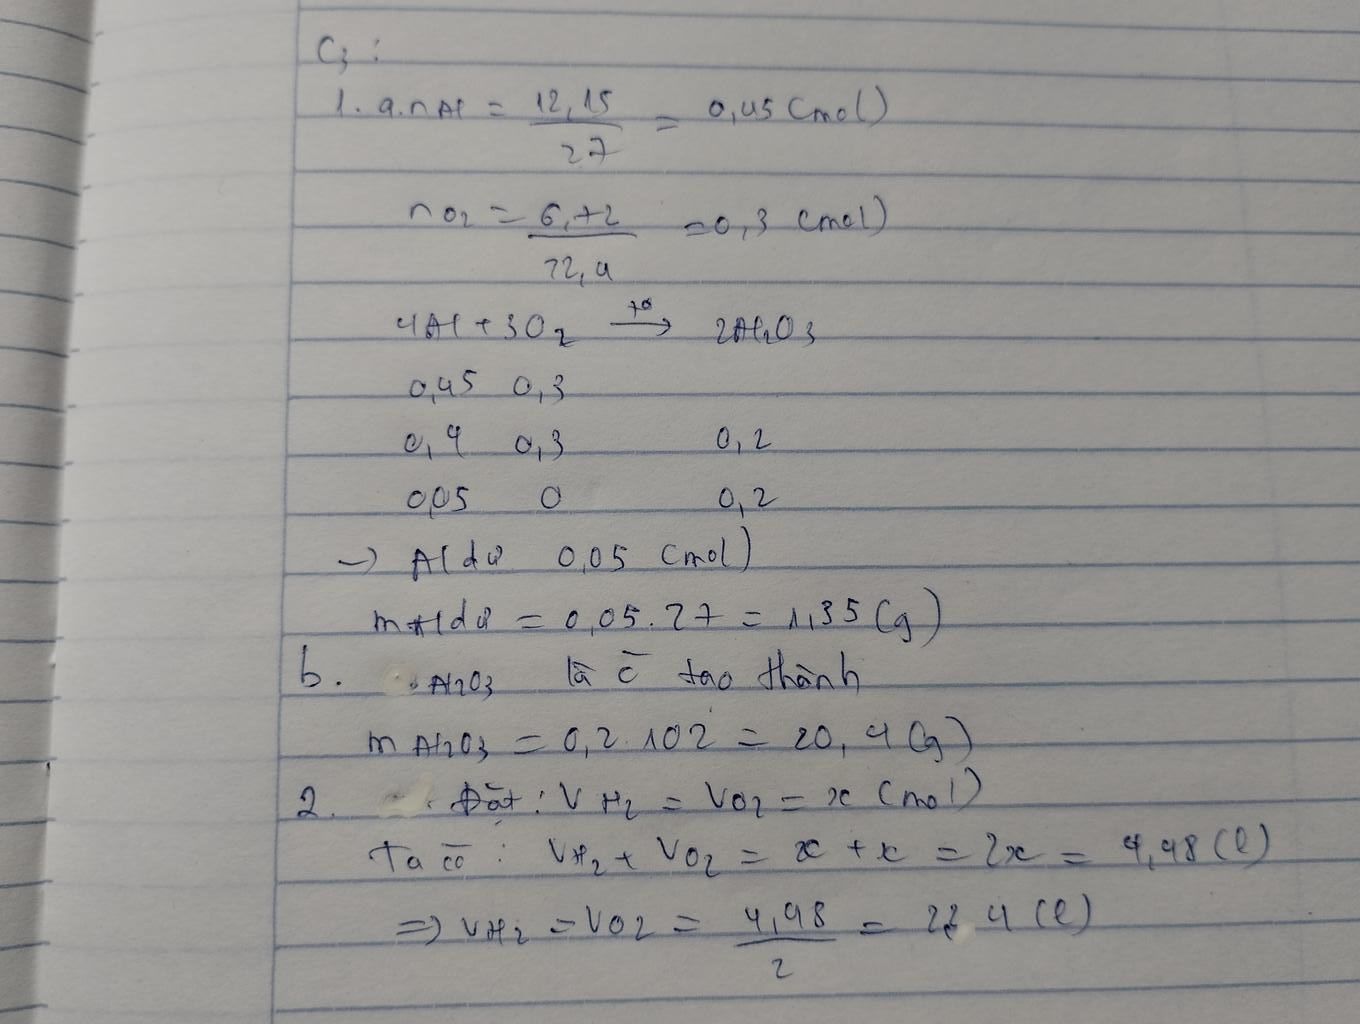 C3 :
1. a. nAl = 12,15 / 27 = 0,45 (mol)
nO2 = 6,72 / 22,4 = 0,3 (mol)
4Al + 3O2 t° → 2Al2O3
0,45 0,3
0,4 0,3 0,2
0,05 0 0,2
→ Al dư 0,05 (mol)
mAl dư = 0,05. 27 = 1,35 (g)
b. Al2O3 là c tạo thành
mAl2O3 = 0,2. 102 = 20,4 (g)
2. Đặt : VH2 = VO2 = x (mol)
Ta có : VH2 + VO2 = x + x = 2x = 4,48 (l)
=> VH2 = VO2 = 4,48 / 2 = 22,4 (l)